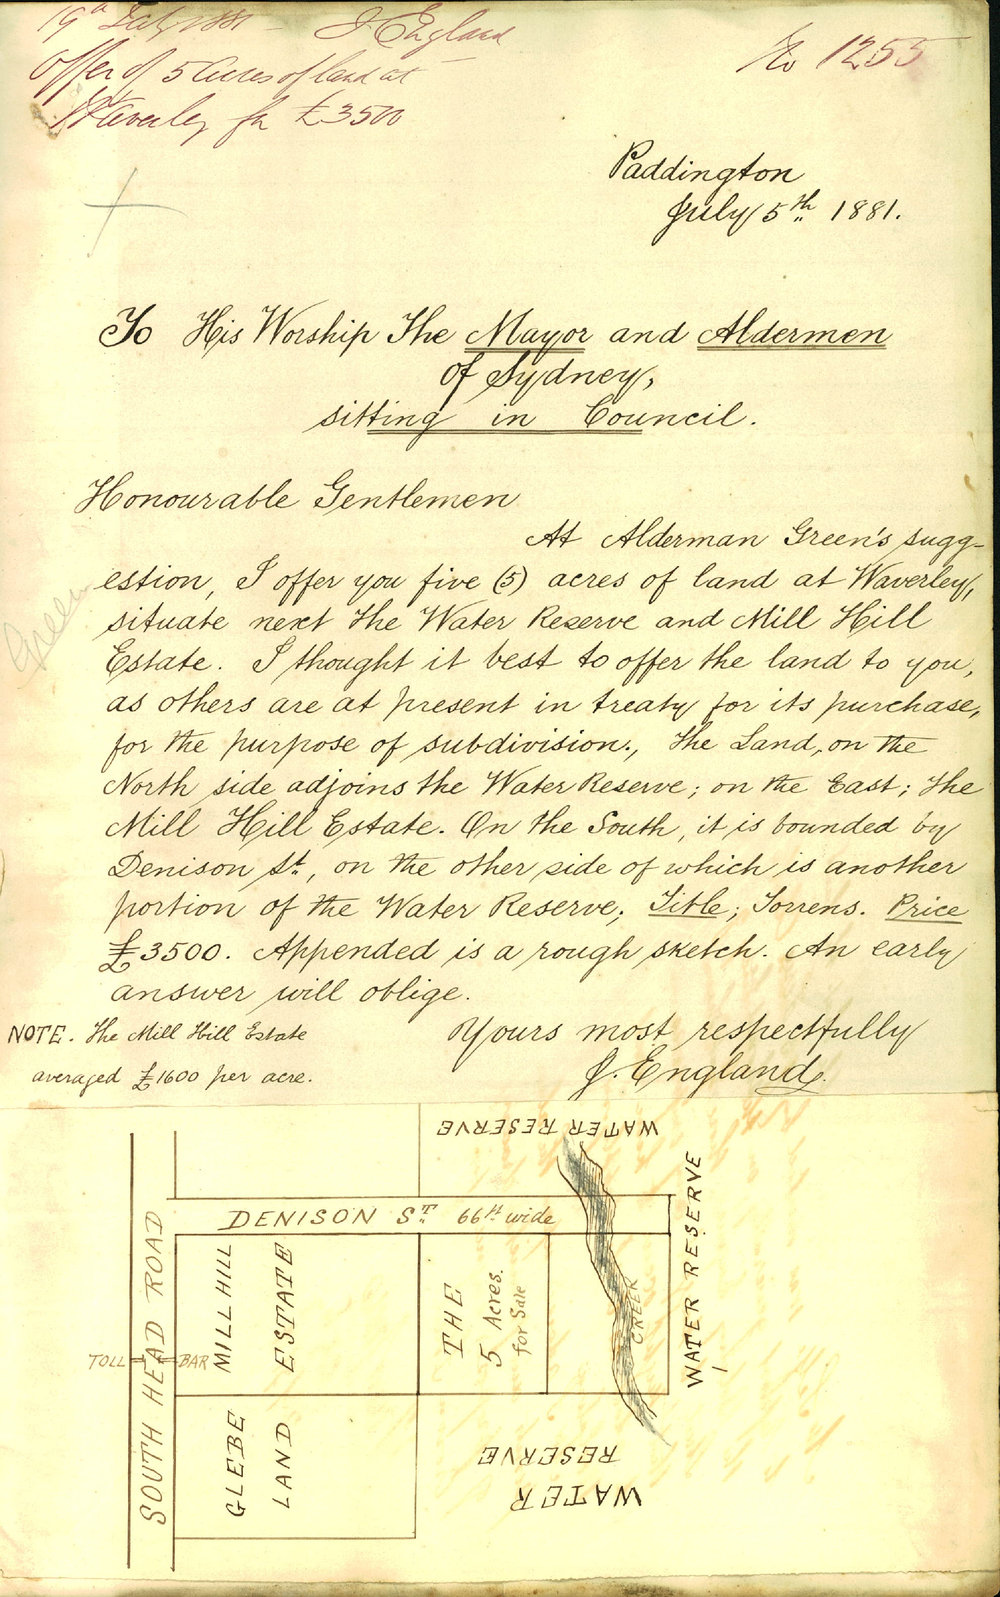 19th July 1881 - J England
Offer of 5 Acres of land at
Waverley for £3500
No 1255
Paddington
July 5th 1881.
To His Worship The Mayor and Aldermen
of Sydney,
sitting in Council.
Honourable Gentlemen
At Alderman Green's sugg-
estion, I offer you five (5) acres of land at Waverley,
situate next the Water Reserve and Mill Hill
Estate. I thought it best to offer the land to you,
as others are at present in treaty for its purchase,
for the purpose of subdivision., The Land, on the
North side adjoins the Water Reserve; on the East; the
Mill Hill Estate. On the South, it is bounded by
Denison St, on the other side of which is another
portion of the Water Reserve. Title; Torrens. Price
£3500. Appended is a rough sketch. An early
answer will oblige.
Yours most respectfully
J. England.
NOTE. The Mill Hill Estate
averaged £1600 per acre.
Green
WATER RESERVE
DENISON ST. 66ft wide
WATER RESERVE
SOUTH HEAD ROAD
TOLL BAR
MILL HILL
ESTATE
THE
5 Acres.
for Sale
CREEK
GLEBE
LAND
WATER
RESERVE